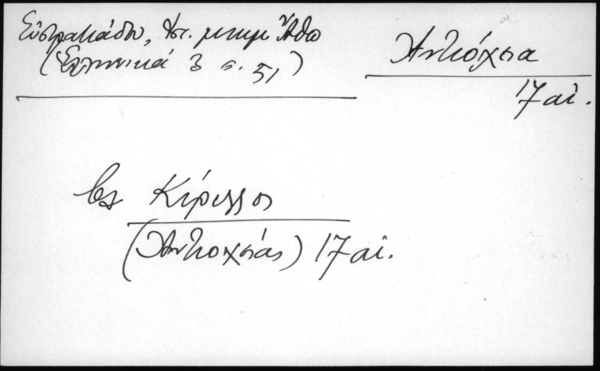 Εὐστρατιάδου, Ἱστ. μνημ Ἄθω
(Ἑλληνικά 3 σ. 51)
Ἀντιόχεια
17 αἰ.
βλ Κύριλλος
(Ἀντιοχείας) 17 αἰ.